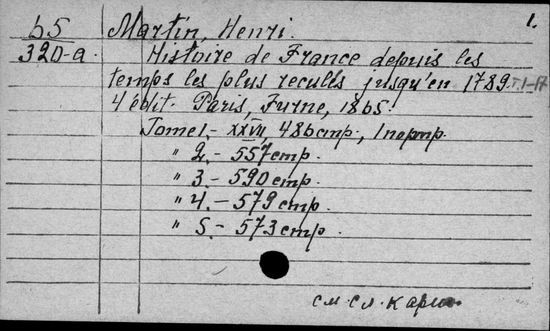 1.
65 Martin, Henri.
320-a Histoire de France depuis les
temps les plus reculls jusqu'en 1789. T. 1-17
4 édit. Paris, Furne, 1865
Tome 1.- XXIV, 486 стр., 1 портр.
" 2.- 557 стр.
" 3.- 590 стр.
" 4.- 579 стр.
" 5.- 573 стр.
см. сл. карт.